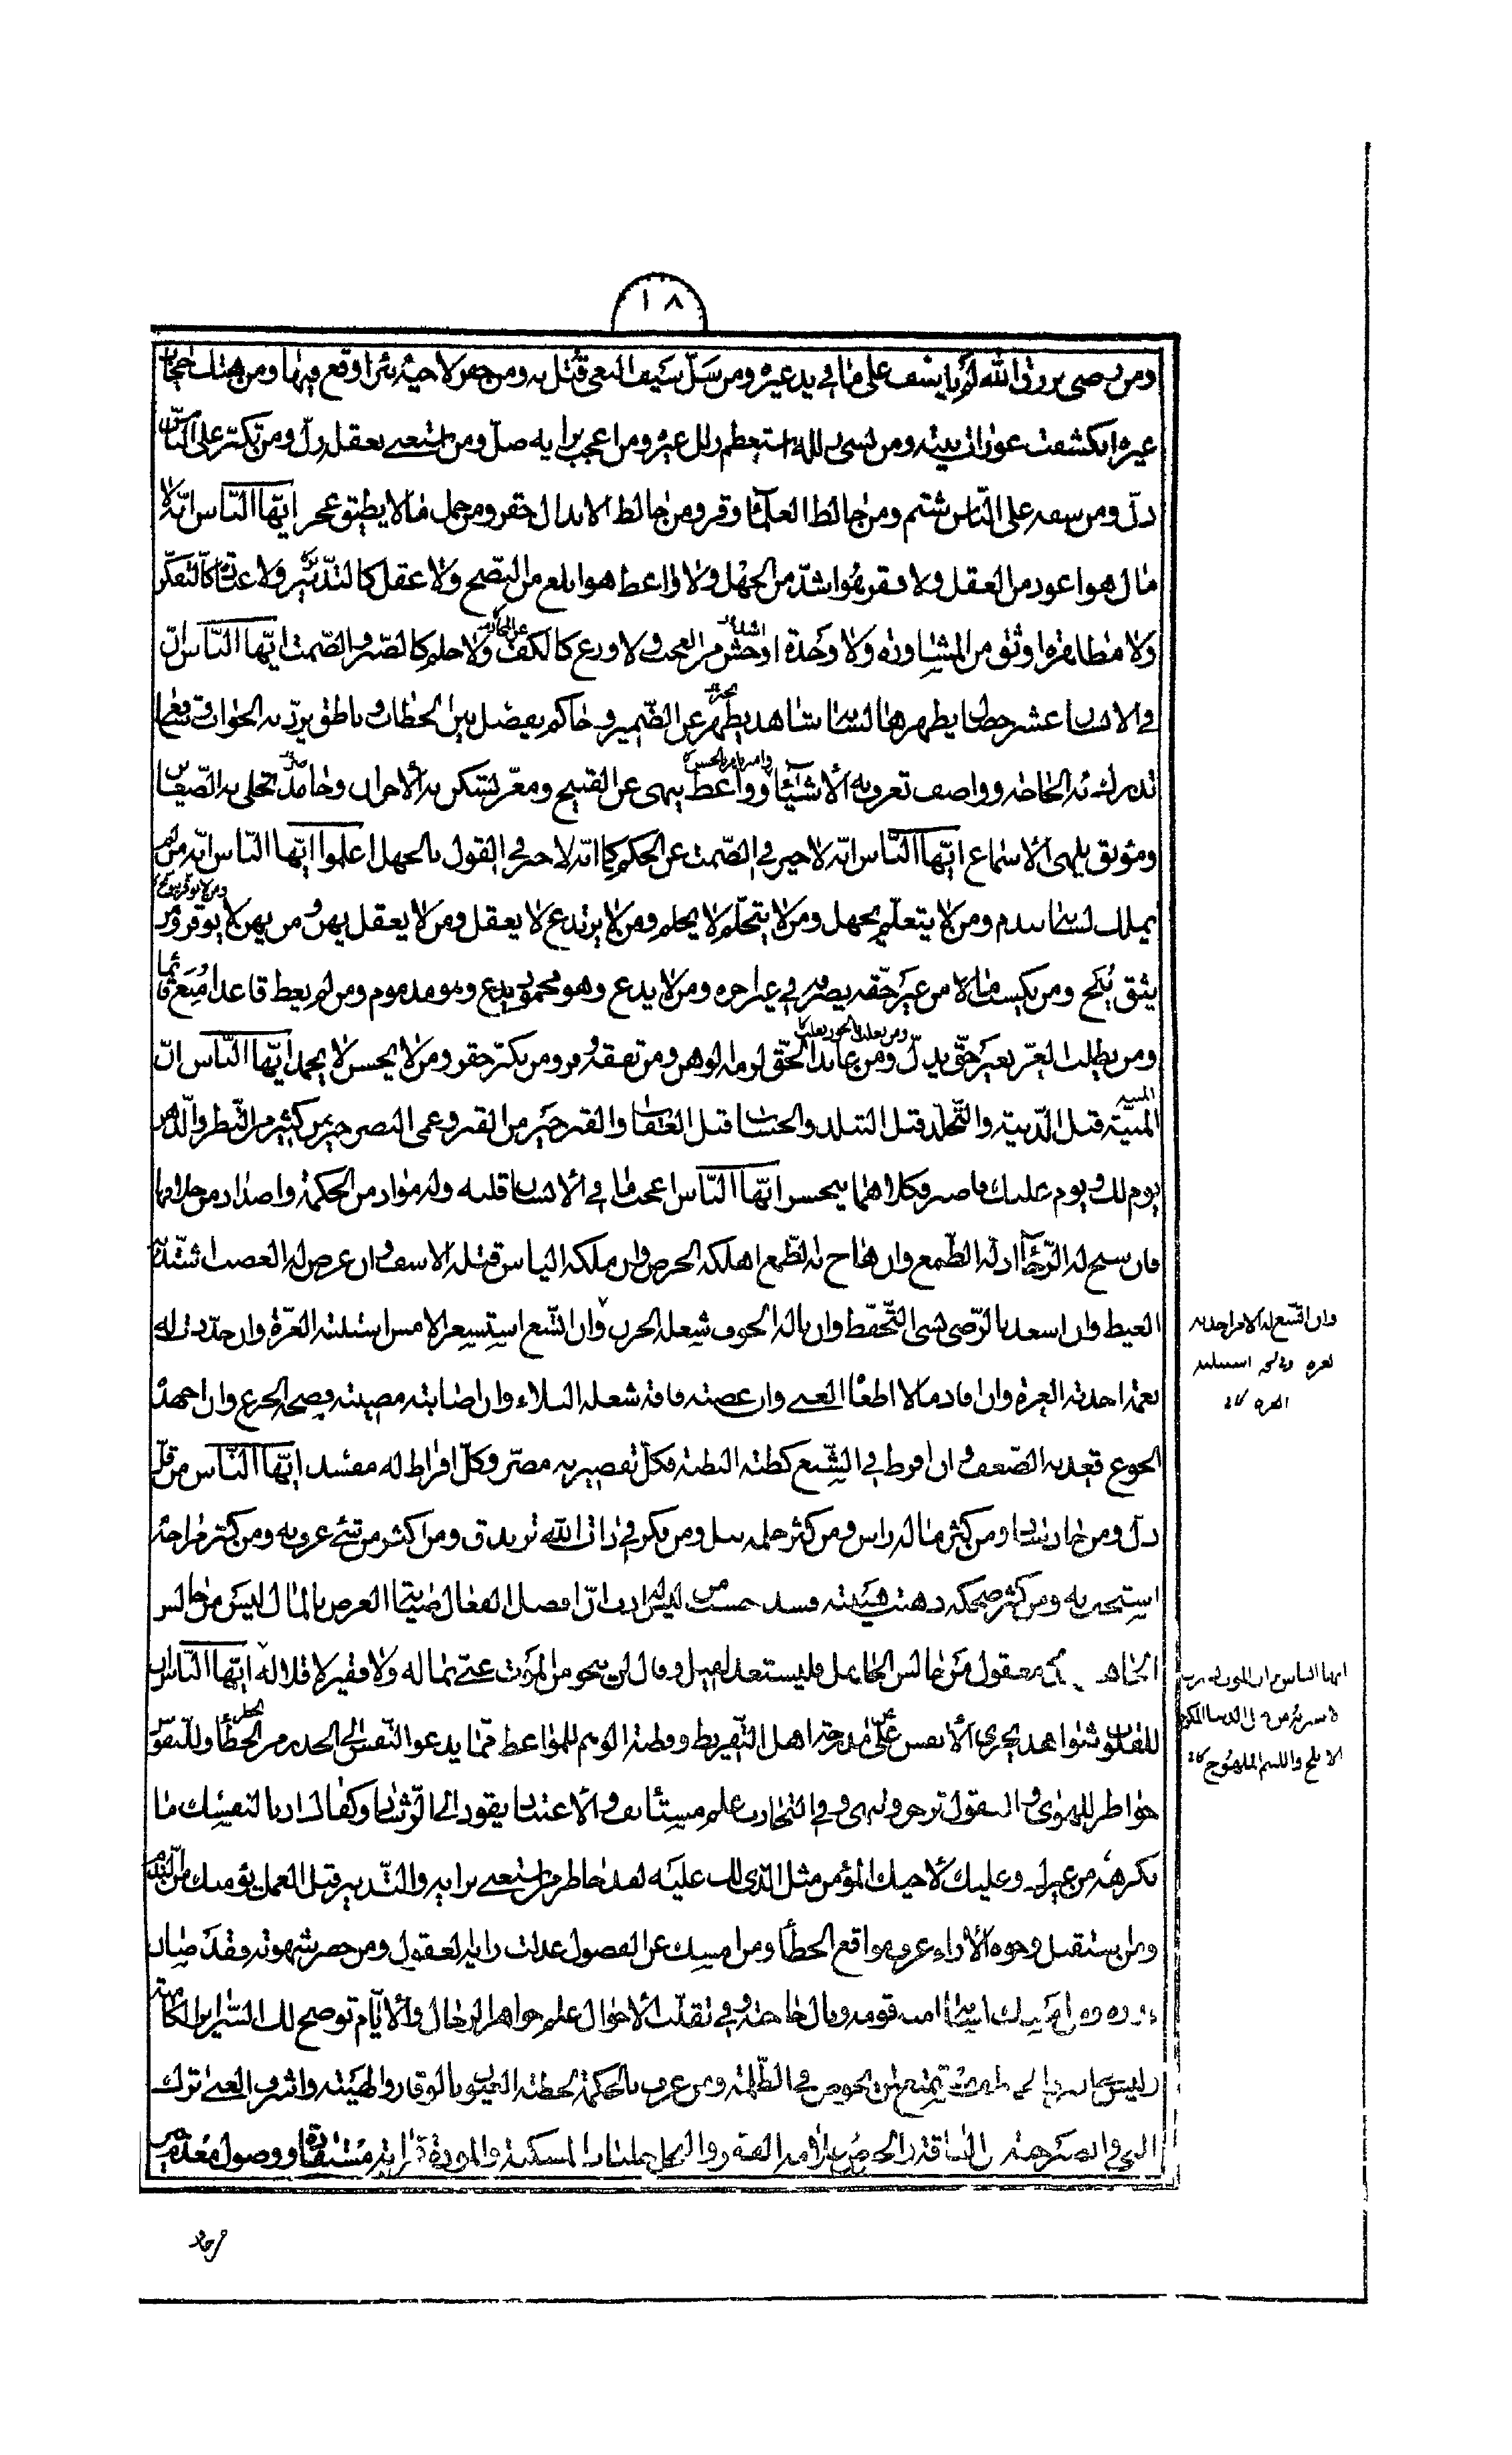 ١٨
ومن رضي برزق الله لم يأسف على ما في يد غيره ومن سل سيف البغي قتل به ومن حفر لاخيه بئرا وقع فيها ومن هتك حجاب
غيره انكشفت عورات بيته ومن نسي زلله استعظم زلل غيره ومن اعجب برايه ضل ومن استغنى بعقله زل ومن تكبر على الناس
ذل ومن سفه على الناس شتم ومن خالط العلماء وقر ومن خالط الانذال حقر ومن حمل ما لا يطيق عجز ايها الناس انه لا
مال هو اعود من العقل ولا فقر هو اشد من الجهل ولا واعظ هو ابلغ من النصح ولا عقل كالتدبير ولا عبادة كالتفكر
ولا مظاهرة اوثق من المشاورة ولا وحدة اوحش من العجب ولا ورع كالكف ولا حلم كالصبر والصمت ايها الناس ان
في الانسان عشر خصال يظهرها لسانه شاهد يظهر عن الضمير وحاكم يفصل بين الخطاب وناطق يرد به الجواب وشافع
تدرك به الحاجة وواصف تعرف به الاشياء وواعظ ينهى عن القبيح ومعز تسكن به الاحزان وحامد تجلى به الضغاين
ومونق يلهي الاسماع ايها الناس انه لا خير في الصمت عن الحكم كما انه لا خير في القول بالجهل اعلموا ايها الناس انه من لم
يملك لسانه يندم ومن لا يتعلم يجهل ومن لا يتحلم لا يحلم ومن لا يرتدع لا يعقل ومن لا يعقل يهن ومن يهن لا يوقر ومن
يتق ينج ومن يكسب مالا من غير حقه يصرفه في غير اجره ومن لا يدع وهو محمود يدع وهو مذموم ومن لم يعط قاعدا منع قائما
ومن يطلب العز بغير حق يذل ومن عاند الحق لزمه الوهن ومن تفقه وقر ومن تكبر حقر ومن لا يحسن لا يحمد ايها الناس ان
المنية قبل الدنية والتجلد قبل التبلد والحساب قبل العقاب والقبر خير من الفقر وعمى البصر خير من كثير من النظر والدهر
يوم لك ويوم عليك فاصبر فكلاهما سيحسر ايها الناس اعجب ما في الانسان قلبه وله مواد من الحكمة واضداد من خلافها
فان سنح له الرجاء اذله الطمع وان هاج به الطمع اهلكه الحرص وان ملكه الياس قتله الاسف وان عرض له الغضب اشتد به
الغيظ وان اسعد بالرضى نسي التحفظ وان ناله الخوف شغله الحزن وان اتسع الامن استلبته الغرة وان جددت له
نعمة اخذته العزة وان افاد مالا اطغاه الغنى وان عضته فاقة شغله البلاء وان اصابته مصيبة فضحه الجزع وان اجهده
الجوع قعد به الضعف وان افرط في الشبع كظته البطنة فكل تقصير به مضر وكل افراط له مفسد ايها الناس من قل
ذل ومن جاد ساد ومن كثر ماله راس ومن كثر حلمه نبل ومن فكر في ذات الله تزندق ومن اكثر من شيء عرف به ومن كثر مزاحه
استخف به ومن كثر ضحكه ذهبت هيبته فسد حسب من ليس له ادب ان افضل الفعال صيانة العرض بالمال ليس من جالس
الجاهل بذي معقول من جالس الجاهل فليستعد لقيل وقال لن ينجو من الموت غني بماله ولا فقير لاقلاله ايها الناس ان
للقلوب شواهد تجري الانفس عن مدرجة اهل التفريط وفطنة الفهم للمواعظ مما يدعو النفس الى الحذر من الخطأ وللنفوس
خواطر للهوى والعقول تزجر وتنهى وفي التجارب علم مستانف والاعتبار يقود الى الرشاد وكفاك ادبا لنفسك ما
تكرهه من غيرك وعليك لاخيك المؤمن مثل الذي لك عليه لقد خاطر من استغنى برايه والتدبير قبل العمل يؤمنك من الندم
ومن استقبل وجوه الاراء عرف مواقع الخطأ ومن امسك عن الفضول عدلت رايه العقول ومن حصر شهوته فقد صان
قدره ومن امسك لسانه امنه قومه ونال حاجته وفي تقلب الاحوال علم جواهر الرجال والايام توضح لك السراير الكامنة
وليس في البرق الخاطف مستمتع لمن يخوض في الظلمة ومن عرف بالحكمة لحظته العيون بالوقار والهيبة واشرف الغنى ترك
المنى والصبر جنة من الفاقة والحرص علامة الفقر والبخل جلباب المسكنة والمودة قرابة مستفادة ووصول معدم
وان اتسع له الامر اخذته
العزة وفي نسخة استلبته
العزة كا
ايها الناس